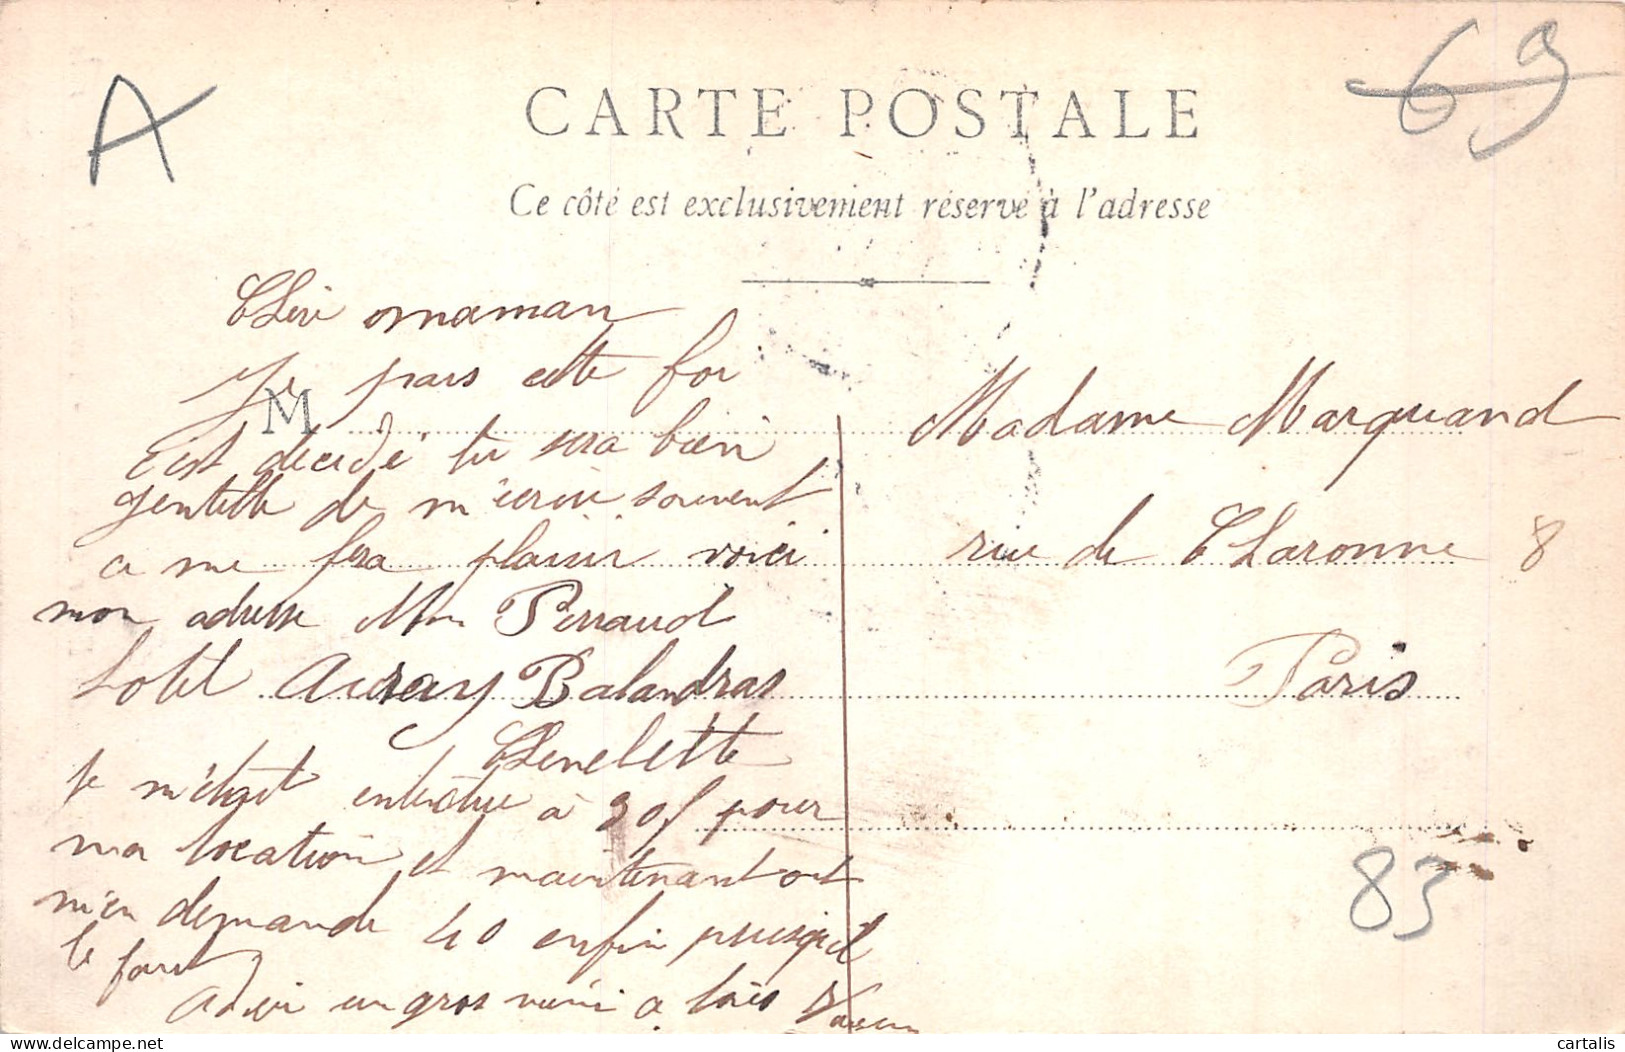 A
69
CARTE POSTALE
Ce côté est exclusivement réservé à l'adresse
Chère maman
Je pars cette foi
M
c'est décidé tu sera bien
gentille de m'écrire souvent
ca me fera plaisir voici
mon adresse Mme Perraud
hotel Auray Balandras
Chenelette
Je m'étais entendue à 30f pour
ma location et maintenant ont
m'en demande 40 enfin puisqu'il
le faut
Adieu un gros mimi a tous
Madame Marquand
rue de Charonne 8
Paris
83
delcampe.net
cartalis